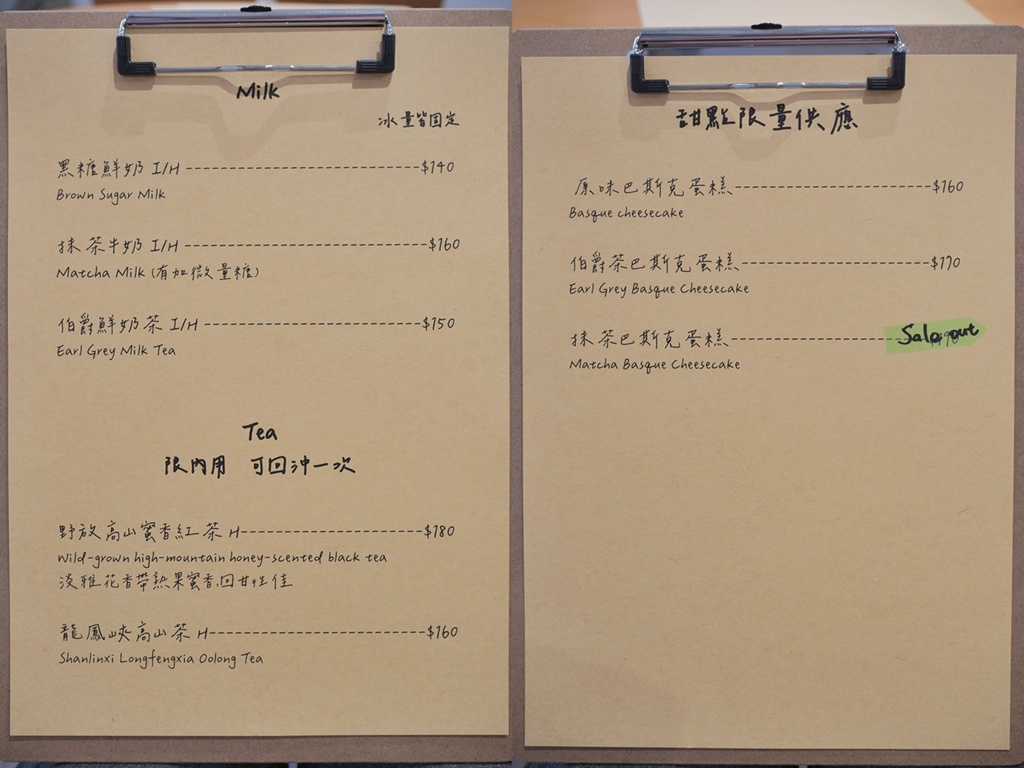 Milk
冰量皆固定
黑糖鮮奶 I/H ---------- $140
Brown Sugar Milk
抹茶牛奶 I/H ---------- $160
Matcha Milk (有加微量糖)
伯爵鮮奶茶 I/H ---------- $150
Earl Grey Milk Tea
Tea
限內用 可回沖一次
野放高山蜜香紅茶 H ---------- $180
Wild-grown high-mountain honey-scented black tea
淡雅花香帶熟果蜜香,回甘性佳
龍鳳峽高山茶 H ---------- $160
Shanlinxi Longfengxia Oolong Tea
甜點限量供應
原味巴斯克蛋糕 ---------- $160
Basque cheesecake
伯爵茶巴斯克蛋糕 ---------- $170
Earl Grey Basque Cheesecake
抹茶巴斯克蛋糕 ---------- Salo out
Matcha Basque Cheesecake